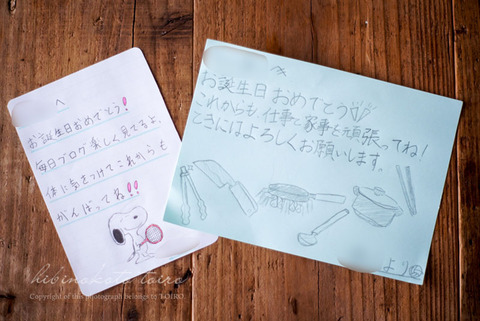 へ
お誕生日おめでとう!!
毎日ブログ楽しく見てるよ。
体に気をつけてこれからも
がんばってね!!
へ
お誕生日おめでとう
これからも仕事と家事を頑張ってね!
ときにはよろしくお願いします。
より
hibinokoto toiro
Copyright of this photograph belongs to TOIRO.